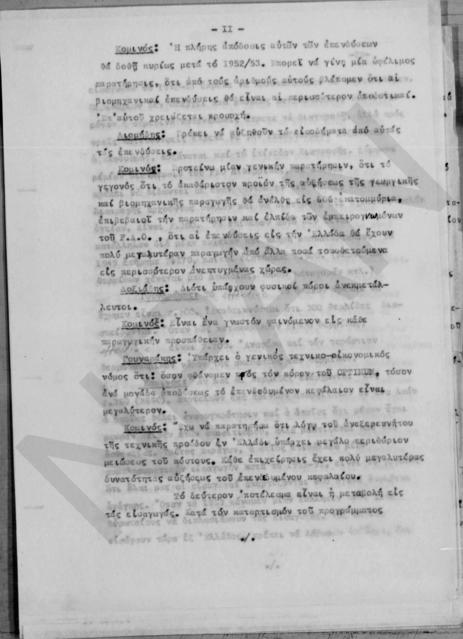 - 11 -
Κομινός: Ἡ πλήρης ἀπόδοσις αὐτῶν τῶν ἐπενδύσεων
θά δοθῇ κυρίως μετά τό 1952/53. Μπορεῖ νά γίνῃ μία ὠφέλιμος
παρατήρησις, ὅτι ἀπό τούς ἀριθμούς αὐτούς βλέπομεν ὅτι αἱ
βιομηχανικαί ἐπενδύσεις θά εἶναι αἱ περισσότερον ἀποδοτικαί.
Ἐπ'αὐτοῦ χρειάζεται προσοχή.
Διομήδης: Πρέπει νά αὐξηθοῦν τά εἰσοδήματα ἀπό αὐτάς
τάς ἐπενδύσεις.
Κομινός: Προτείνω μίαν γενικήν παρατήρησιν, ὅτι τό
γεγονός ὅτι τό ἀκαθάριστον προϊόν τῆς αὐξήσεως τῆς γεωργικῆς
καί βιομηχανικῆς παραγωγῆς θά ἀνέλθῃ εἰς ἑκατομμύρια,
ἐπιβεβαιοῖ τήν παρατήρησιν καί ἐλπίδα τῶν ἐμπειρογνωμόνων
τοῦ F.A.O., ὅτι αἱ ἐπενδύσεις εἰς τήν Ἑλλάδα θά ἔχουν
πολύ μεγαλυτέραν παραγωγήν ἀπό ἄλλα ποσά τοποθετούμενα
εἰς περισσότερον ἀνεπτυγμένας χώρας.
Δοξιάδης: Διότι ὑπάρχουν φυσικοί πόροι ἀνεκμετάλ-
λευτοι.
Κομινός: Εἶναι ἕνα γνωστόν φαινόμενον εἰς κάθε
παραγωγικήν προσπάθειαν.
Γουναράκης: Ὑπάρχει ὁ γενικός τεχνικο-οἰκονομικός
νόμος ὅτι: ὅσον φθάνομεν πρός τόν κόρον τοῦ OPTIMUM, τόσον
ἀνά μονάδα ἀποδόσεως τό ἐπενδυόμενον κεφάλαιον εἶναι
μεγαλύτερον.
Κομινός: Ἔχω νά παρατηρήσω ὅτι λόγῳ τοῦ ἀνεξερευνήτου
τῆς τεχνικῆς προόδου ἐν Ἑλλάδι ὑπάρχει μεγάλο περιθώριον
μειώσεως τοῦ κόστους. Κάθε ἐπιχείρησις ἔχει πολύ μεγαλυτέρας
δυνατότητας αὐξήσεως τοῦ ἐπενδυομένου κεφαλαίου.
Τό δεύτερον ἀποτέλεσμα εἶναι ἡ μεταβολή εἰς
τάς εἰσαγωγάς. Κατά τόν καταρτισμόν τοῦ προγράμματος
./.